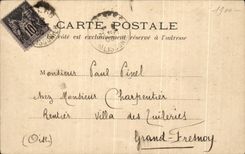 1900
CARTE POSTALE
Ce côté est exclusivement réservé à l'adresse
10
Monsieur Paul Pizel
chez Monsieur Charpentier
Rentier Villa des Tuileries
Grand-Fresnoy
(Oise)